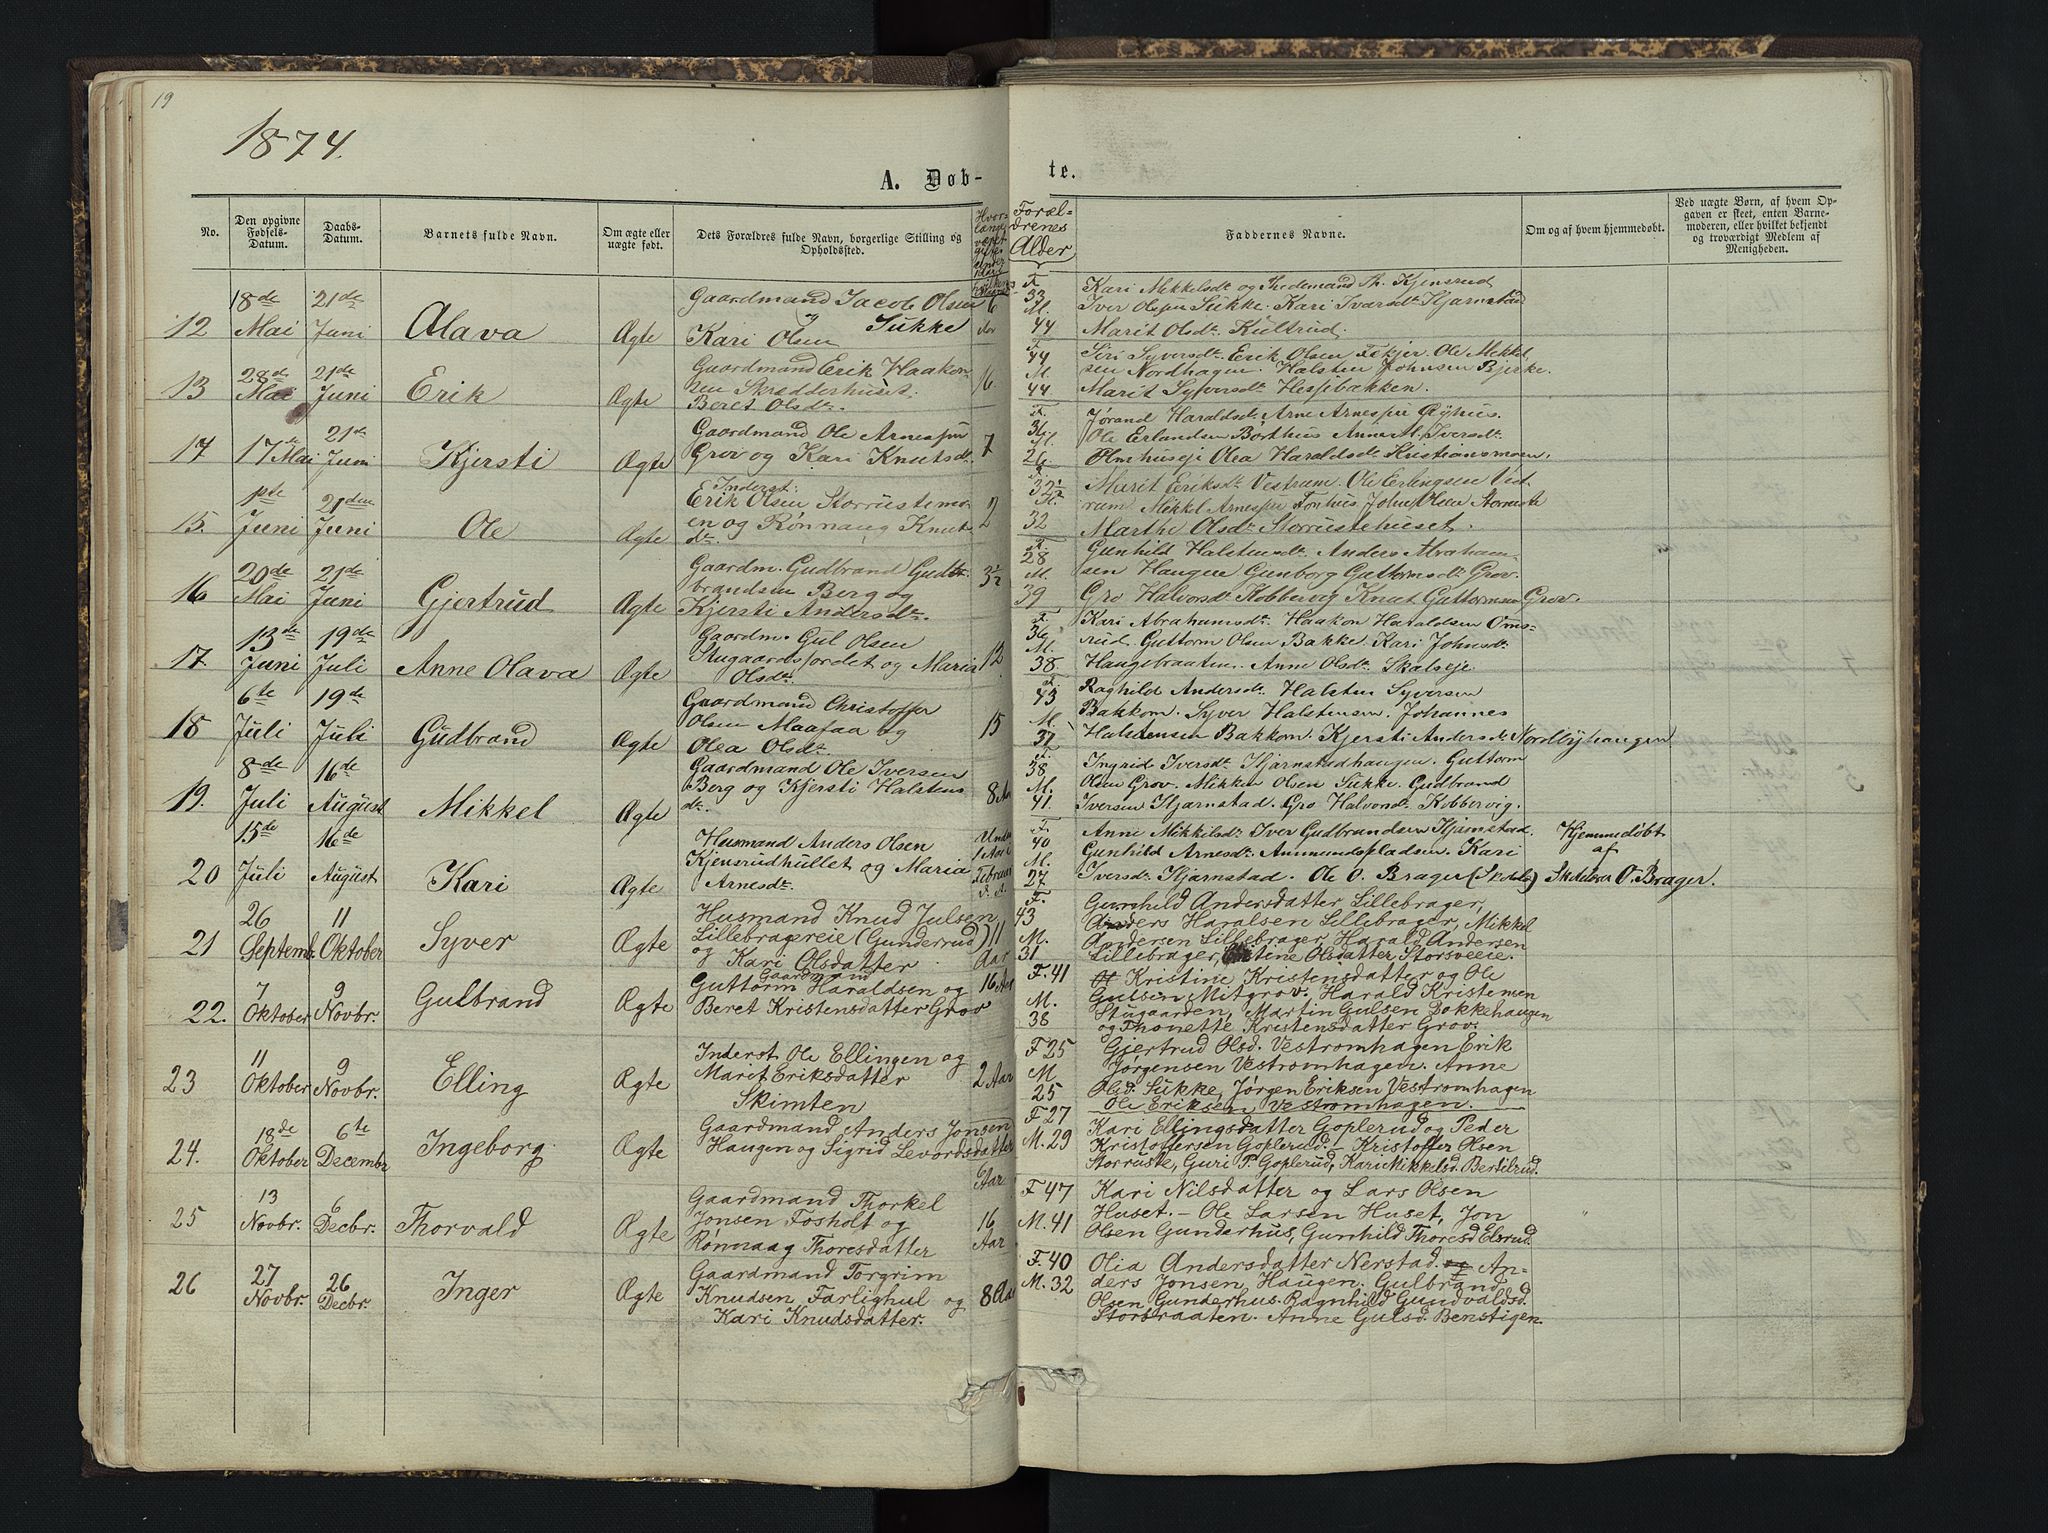 19
1874.
A. Døb-
te.
No.
Den opgivne Fødsels-Datum.
Daabs-Datum.
Barnets fulde Navn.
Om ægte eller uægte født.
Dets Forældres fulde Navn, borgerlige Stilling og Opholdssted.
Foræl-
drenes
Alder
Faddernes Navne.
Om og af hvem hjemmedøbt.
Ved uægte Børn, af hvem Op-
gaven er skeet, enten Barne-
moderen, eller hvilket bekjendt
og troværdigt Medlem af
Menigheden.
12
18de Mai
21de Juni
Olava
Ægte
Gaardmand Jacob Olsen
og Sukke
Kari Olsen
6
F. 33
M. 44
Kari Mikkelsdt. og Fredemand Th. Kjensrud
Iver Olsen Sukke. Kari Ivarsdt. Hjarnstad
Marit Olsdt. Kultrud.
13
28de Mai
21de Juni
Erik
Ægte
Gaardmand Erik Haakon
sen Skrædderhuset.
Beret Olsdt.
16
F. 44
M. 44
Siri Syversdt. Erik Olsen Ole Mikkel
sen Nordhagen. Halsten Johnsen Bjerke.
Marit Syversdt. Hesjebakken.
17
17de Mai
21de Juni
Kjersti
Ægte
Gaardmand Ole Arnesen
Grov og Kari Knutsdt.
7
F. 36
M. 26
Jørand Haraldsdt. Arne Arnesen
Ole Erlandsen Børthus Anne M. Iversdt.
Olmhuseje Olea Haraldsdt. Kristiansmoen.
15.
1ste Juni
21den Juni
Ole
Ægte
Inderst.
Erik Olsen Storrustemo-
en og Rønnaug Knuts-
dt.
2
F. 32
M. 32
Marit Eriksdt. Vestrum. Ole Erlingsen Vest
rum Mikkel Arnesen Fonhus John Olsen Storruste
Marthe Olsdt. Storrustehuset.
16
20de Mai
21de Juni
Gjertrud
Ægte
Gaardm. Gudbrand Gudb-
brandsen Berg og
Kjersti Andersdt.
3½
F. 28
M. 39
Gunhild Halstensdt. Anders Abraham-
sen Haugen Gunborg Guttormsdt. Grov.
Gro Halvorsdt. Kobbervig Knut Guttormsen Grov.
17.
13de Juni
19de Juli
Anne Olava
Ægte
Gaardm. Gul Olsen
Stugaardsjordet og Maria
Olsdt.
12
F. 36
M. 38.
Kari Abrahamsdt. Haakon Haraldsen Oms-
rud. Guttorm Olsen Bakke. Kari Johnsdt.
Haugebraaten. Anne Olsdt. Skalseje.
18
6te Juli
19de Juli
Gudbrand
Ægte
Gaardmand Christoffer
Olsen Maafaa og
Olea Olsdt.
15
F. 43
M. 37
Raghild Andersdt. Halsten Syversen
Bakkom. Syver Halstensen. Johannes
Halstensen Bakkom. Kjersti Andersdt. Nordbyhaugen
19.
8de Juli
16de August
Mikkel
Ægte
Gaardmand Ole Iversen
Berg og Kjersti Halstens
dt.
8 Aar
F. 38
M. 41.
Ingrid Iversdt. Hjarnstadhaugen. Guttorm
Olsen Grov. Mikken Olsen Sukke. Gudbrand
Iversen Hjarnstad. Gro Halvorsdt. Kobbervig.
20
15de Juli
16de August
Kari
Ægte
Husmand Anders Olsen
Kjensrudhullet og Maria
Arnesdt.
Under
1 Aar i
Februar
F. 40
M. 27
Anne Mikkelsdt. Iver Gudbrandsen Hjarnstad.
Gunhild Arnesdt. Ammundspladsen. Kari
Iversdt. Hjarnstad. Ole O. Brager
Hjemmedøbt
af
Skolelærer O. Brager.
21
26 Septemb.
11 Oktober
Syver
Ægte
Husmand Knud Julsen
Lillebragereie (Gunderrud)
og Kari Olsdatter
11 Aar
F. 43
M. 31
Gunhild Andersdatter Lillebrager,
Anders Haralsen Lillebrager, Mikkel
Andersen Lillebrager, Harald Andersen
Lillebrager, Olsdatter Storsveeie.
22.
7 Oktober
9 Novbr.
Gulbrand
Ægte
Gaardmand
Guttorm Haraldsen og
Beret Kristensdatter Grov
16 Aar
F. 41
M. 38
Kristine Kristensdatter og Ole
Gulsen Mitgrov. Harald Kristensen
Stugaarden, Martin Gulsen Dokkehaugen
og Thonette Kristensdatter Grov.
23
11 Oktober
9 Novbr.
Elling
Ægte
Inderst Ole Ellingen og
Marit Eriksdatter
Skimten
2 Aar
F 25
M. 25
Gjertrud Olsd. Vestromhagen Erik
Jørgensen Vestromhagen. Anne
Olsd. Sukke, Jørgen Eriksen Vestromhagen
Ole Eriksen Vestromhagen.
24.
18de Oktober
6te Decembr
Ingeborg
Ægte
Gaardmand Anders Jonsen
Haugen og Sigrid Levordsdatter
Aar
F 27
M. 29
Kari Ellingsdatter Goplerud og Peder
Kristoffersen Goplerud. Kristoffer Olsen
Storruste, Guri P. Goplerud, Kari Mikkelsd. Bertilrud.
25
13 Novbr.
6 Decbr.
Thorvald
Ægte
Gaardmand Thorkel
Jonsen Fosholt og
Rønnaag Thoresdatter
16 Aar
F 47
M. 41
Kari Nilsdatter og Lars Olsen
Huset. – Ole Larsen Huset, Jon
Olsen Gunderhus, Gunhild Thoresd Elsrud.
26
27 Novbr.
26 Decbr.
Inger
Ægte
Gaardmand Torgrim
Knudsen Farlighul og
Kari Knudsdatter.
8 Aar
F. 40
M. 32
Olia Andersdatter Nerstad. og An-
ders Jonsen, Haugen. Gulbrand
Olsen Gunderhus. Ragnhild Gundvaldsd.
Storbraaten. Anne Gulsd. Benstigen.